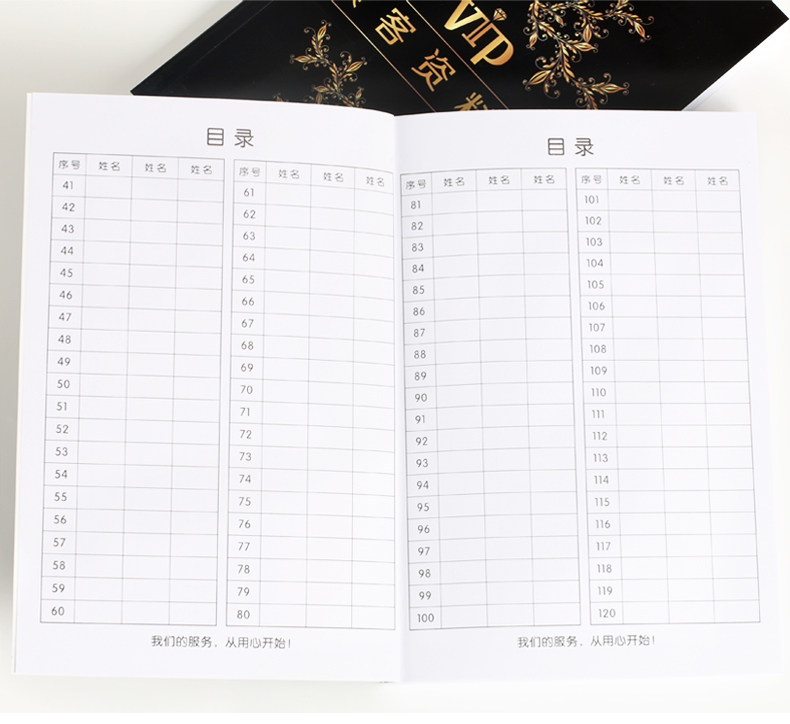 VIP
客资料
目录
序号 姓名 姓名 姓名
41
42
43
44
45
46
47
48
49
50
51
52
53
54
55
56
57
58
59
60
序号 姓名 姓名 姓名
61
62
63
64
65
66
67
68
69
70
71
72
73
74
75
76
77
78
79
80
我们的服务，从用心开始！
目录
序号 姓名 姓名 姓名
81
82
83
84
85
86
87
88
89
90
91
92
93
94
95
96
97
98
99
100
序号 姓名 姓名 姓名
101
102
103
104
105
106
107
108
109
110
111
112
113
114
115
116
117
118
119
120
我们的服务，从用心开始！